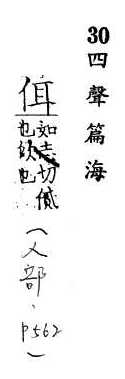 30 四聲篇海
佴
如志切
也佽也
（人部、p562）